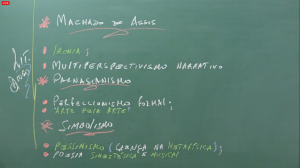 LIVE
* MACHADO DE ASSIS
• IRONIA;
• MULTIPERSPECTIVISMO NARRATIVO
* PARNASIANISMO
• PERFECCIONISMO FORMAL;
• "ARTE PELA ARTE"
* SIMBOLISMO
• PESSIMISMO (CRENÇA NA METAFÍSICA);
• POESIA SINESTÉSICA E MUSICAL
LIT.